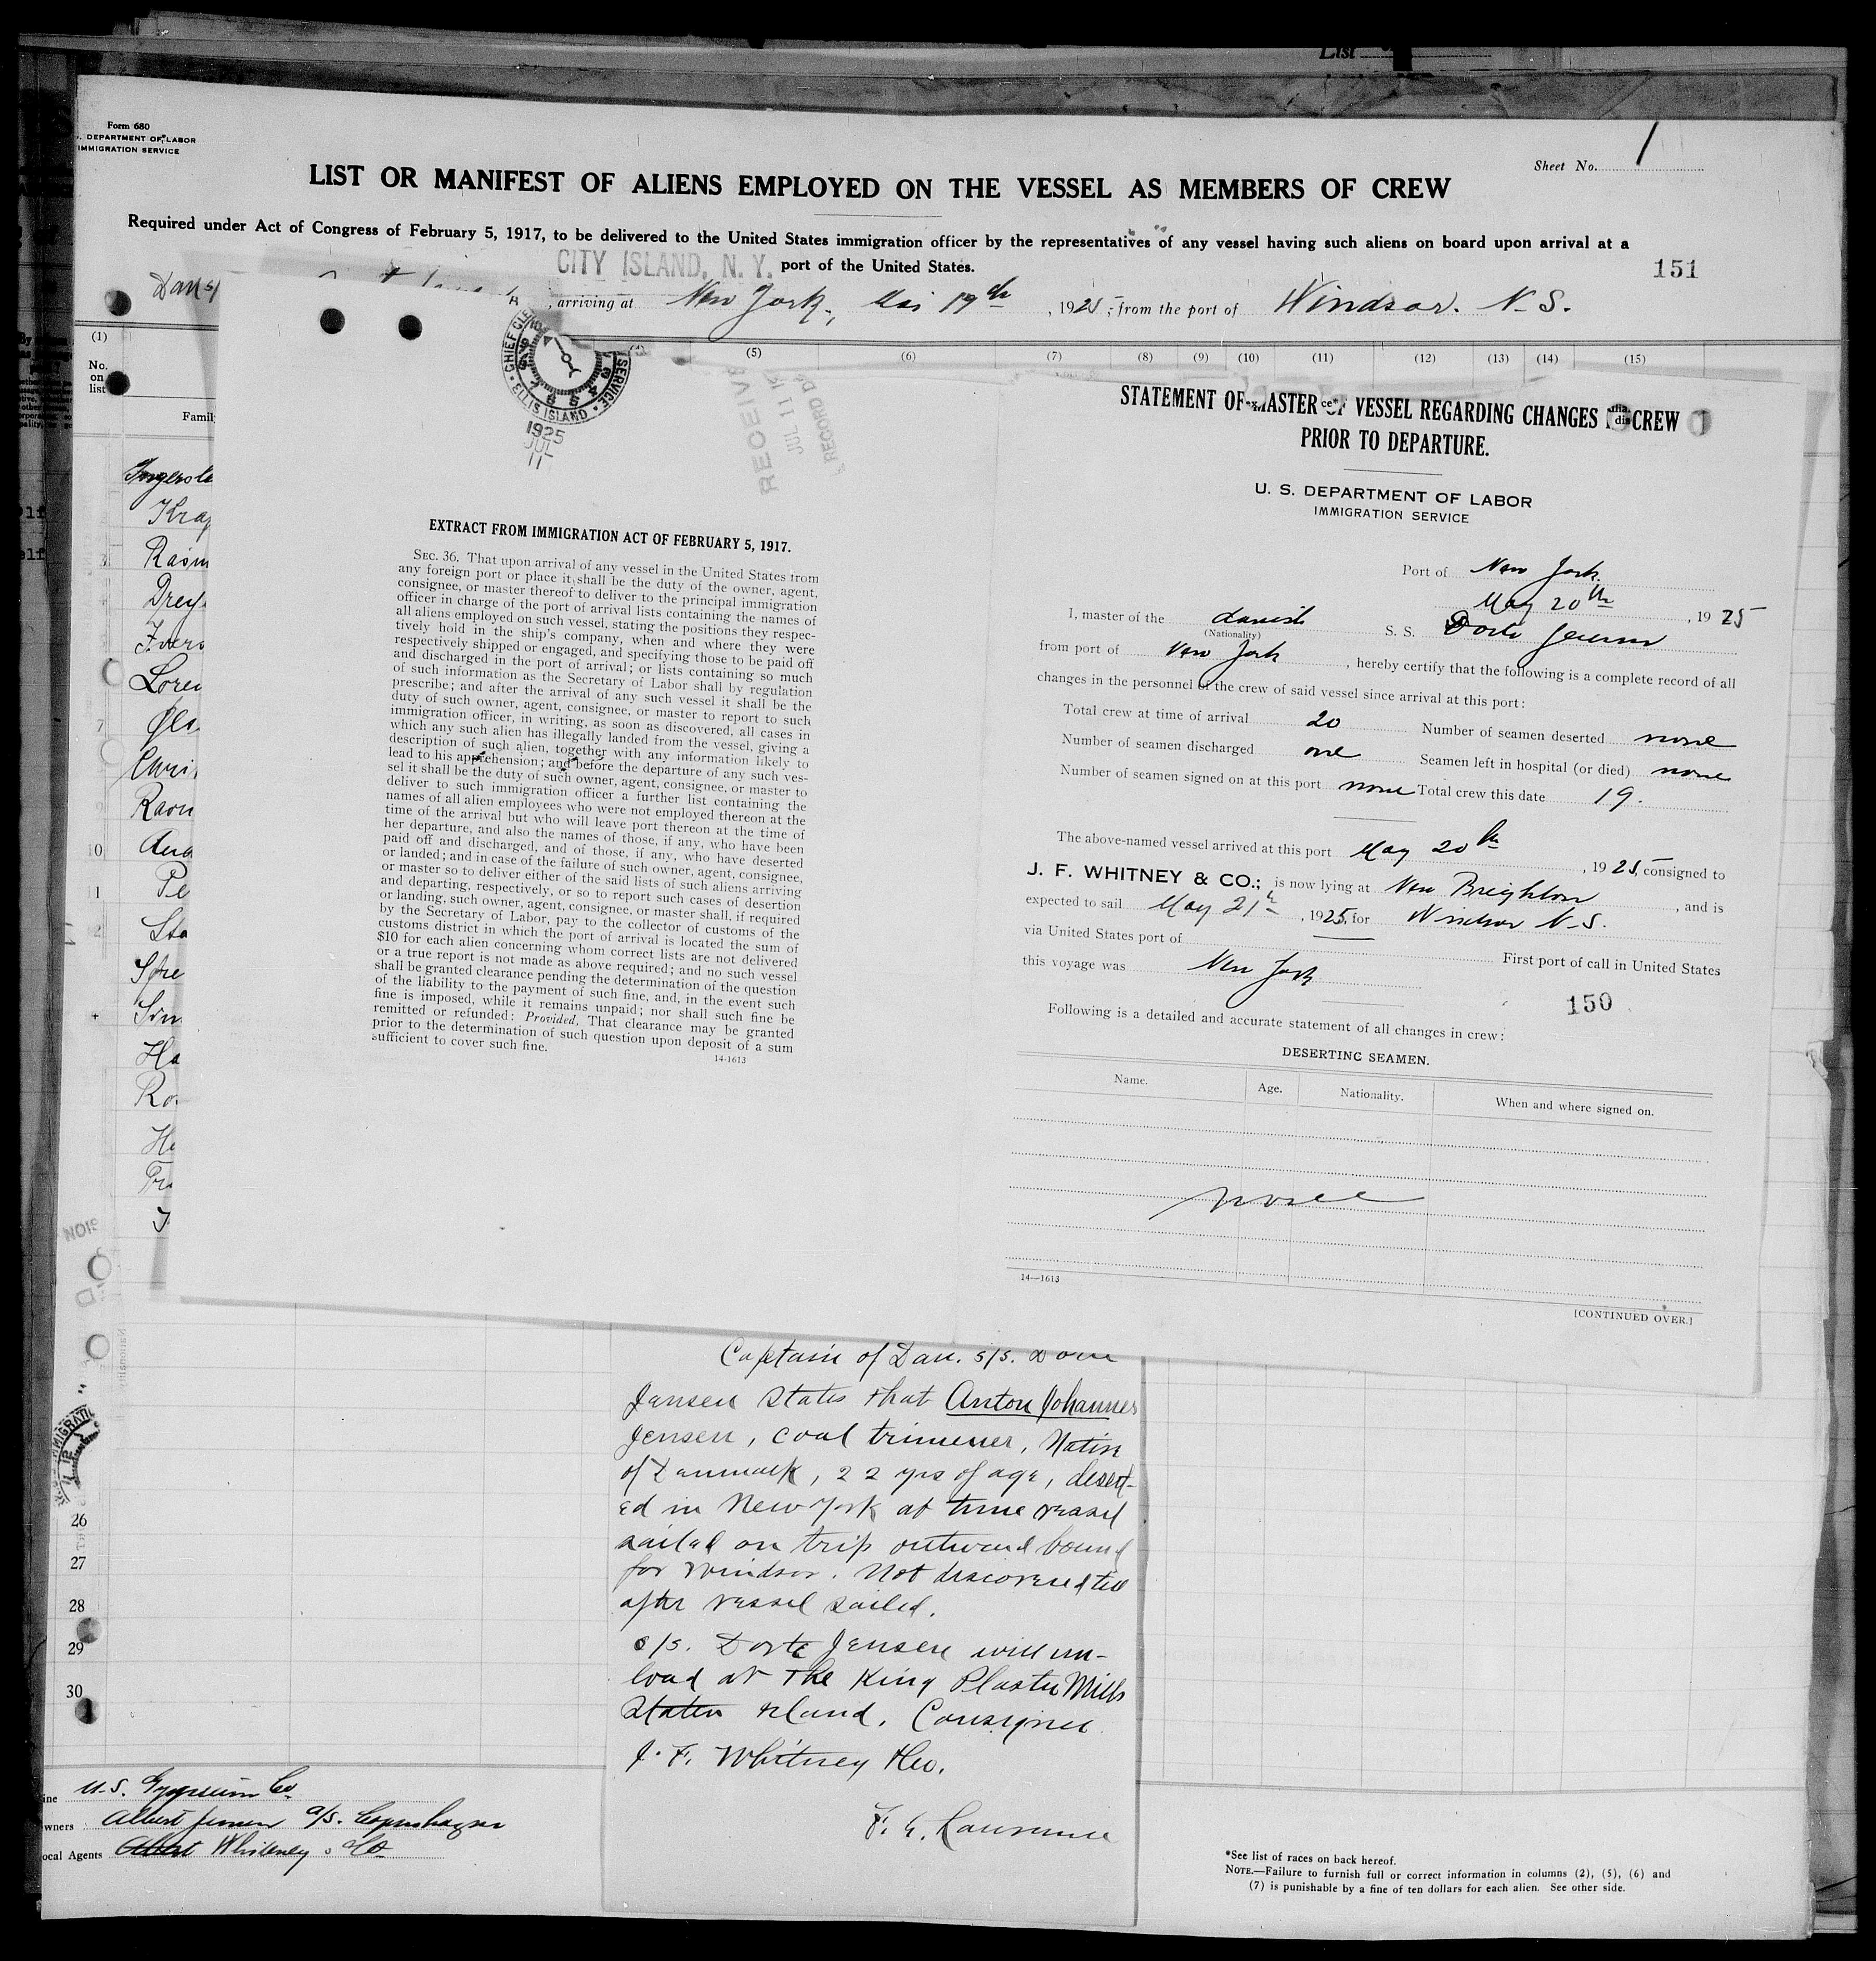 List
Form 680
. DEPARTMENT OF LABOR
IMMIGRATION SERVICE
Sheet No. 1
LIST OR MANIFEST OF ALIENS EMPLOYED ON THE VESSEL AS MEMBERS OF CREW
Required under Act of Congress of February 5, 1917, to be delivered to the United States immigration officer by the representatives of any vessel having such aliens on board upon arrival at a
port of the United States.
CITY ISLAND, N. Y.
151
, arriving at New York, Mai 19th, 1925, from the port of Windsor. N.S.
(1) (5) (6) (7) (8) (9) (10) (11) (12) (13) (14) (15)
No.
on
list
CHIEF CLE
SERVICE
ELLIS ISLAND
1925
JUL
11
RECEIV
JUL 11 1
RECORD D
EXTRACT FROM IMMIGRATION ACT OF FEBRUARY 5, 1917.
SEC. 36. That upon arrival of any vessel in the United States from
any foreign port or place it shall be the duty of the owner, agent,
consignee, or master thereof to deliver to the principal immigration
officer in charge of the port of arrival lists containing the names of
all aliens employed on such vessel, stating the positions they respec-
tively hold in the ship's company, when and where they were
respectively shipped or engaged, and specifying those to be paid off
and discharged in the port of arrival; or lists containing so much
of such information as the Secretary of Labor shall by regulation
prescribe; and after the arrival of any such vessel it shall be the
duty of such owner, agent, consignee, or master to report to such
immigration officer, in writing, as soon as discovered, all cases in
which any such alien has illegally landed from the vessel, giving a
description of such alien, together with any information likely to
lead to his apprehension; and before the departure of any such ves-
sel it shall be the duty of such owner, agent, consignee, or master to
deliver to such immigration officer a further list containing the
names of all alien employees who were not employed thereon at the
time of the arrival but who will leave port thereon at the time of
her departure, and also the names of those, if any, who have been
paid off and discharged, and of those, if any, who have deserted
or landed; and in case of the failure of such owner, agent, consignee,
or master so to deliver either of the said lists of such aliens arriving
and departing, respectively, or so to report such cases of desertion
or landing, such owner, agent, consignee, or master shall, if required
by the Secretary of Labor, pay to the collector of customs of the
customs district in which the port of arrival is located the sum of
$10 for each alien concerning whom correct lists are not delivered
or a true report is not made as above required; and no such vessel
shall be granted clearance pending the determination of the question
of the liability to the payment of such fine, and, in the event such
fine is imposed, while it remains unpaid; nor shall such fine be
remitted or refunded: Provided, That clearance may be granted
prior to the determination of such question upon deposit of a sum
sufficient to cover such fine.
14-1613
STATEMENT OF MASTER OF VESSEL REGARDING CHANGES IN CREW
PRIOR TO DEPARTURE.
U. S. DEPARTMENT OF LABOR
IMMIGRATION SERVICE
Port of New York.
May 20th, 1925
I, master of the danish S. S. Dorte Jensen
(Nationality)
from port of New York, hereby certify that the following is a complete record of all
changes in the personnel of the crew of said vessel since arrival at this port:
Total crew at time of arrival 20 Number of seamen deserted none
Number of seamen discharged one Seamen left in hospital (or died) none
Number of seamen signed on at this port none Total crew this date 19.
The above-named vessel arrived at this port May 20th, 1925, consigned to
J. F. WHITNEY & CO.; is now lying at New Brighton, and is
expected to sail May 21st, 1925, for Windsor N.S.
via United States port of First port of call in United States
this voyage was New York
150
Following is a detailed and accurate statement of all changes in crew:
DESERTING SEAMEN.
Name. Age. Nationality. When and where signed on.
none
14—1613
[CONTINUED OVER.]
Captain of Dan. s/s. Dorte
Jensen states that Anton Johannes
Jensen, coal trimmer, Native
of Denmark, 22 yrs of age, desert-
ed in New York at time vessel
sailed on trip outward bound
for Windsor. Not discovered till
after vessel sailed.
s/s. Dorte Jensen will un-
load at The King Plaster Mills
Staten Island. Consignee
J. F. Whitney & Co.
F. E. Lawrence
26
27
28
29
30
ine U.S. Gypsum Co.
wners Albert Jensen a/s. Copenhagen
ocal Agents Albert Whitney & Co
*See list of races on back hereof.
NOTE.—Failure to furnish full or correct information in columns (2), (5), (6) and
(7) is punishable by a fine of ten dollars for each alien. See other side.